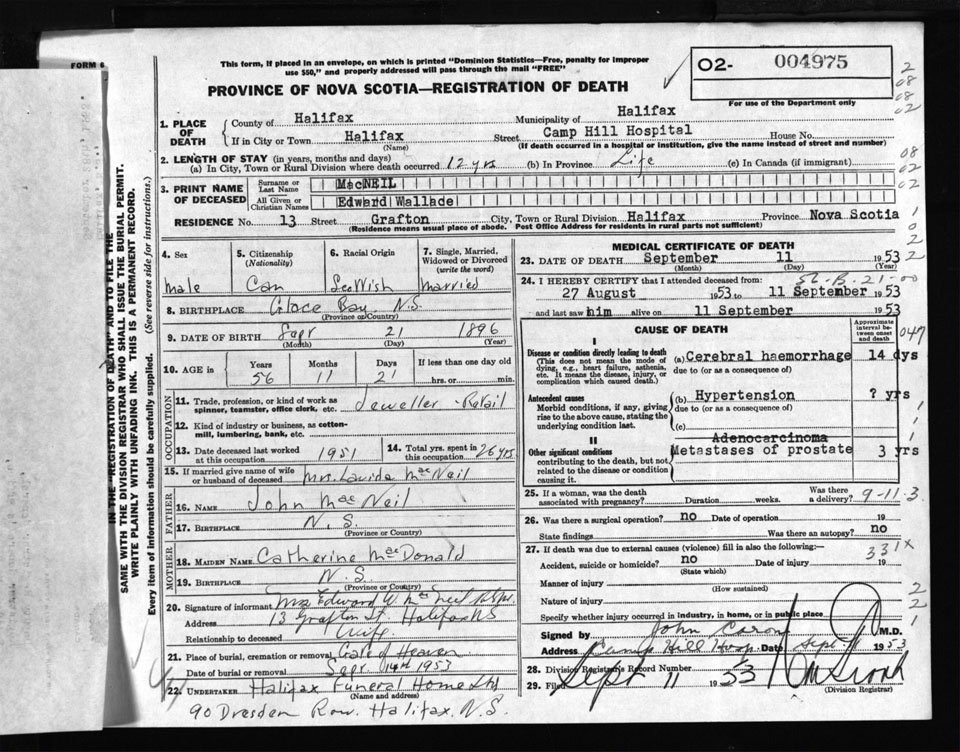 FORM 6
This form, if placed in an envelope, on which is printed "Dominion Statistics—Free, penalty for improper
use $50," and properly addressed will pass through the mail "FREE"
PROVINCE OF NOVA SCOTIA—REGISTRATION OF DEATH
O2- 004975
For use of the Department only
2
08
08
02
IN THE "REGISTRATION OF DEATH" AND TO FILE THE
SAME WITH THE DIVISION REGISTRAR WHO SHALL ISSUE THE BURIAL PERMIT.
WRITE PLAINLY WITH UNFADING INK. THIS IS A PERMANENT RECORD.
Every item of information should be carefully supplied. (See reverse side for instructions.)
1. PLACE OF DEATH
County of Halifax Municipality of Halifax
If in City or Town Halifax Street Camp Hill Hospital House No.
(Name) (If death occurred in a hospital or institution, give the name instead of street and number)
2. LENGTH OF STAY (in years, months and days)
(a) In City, Town or Rural Division where death occurred 12 yrs (b) In Province Life (c) In Canada (if immigrant)
08
02
02
3. PRINT NAME OF DECEASED
Surname or Last Name MacNEIL
All Given or Christian Names Edward Wallace
RESIDENCE No. 13 Street Grafton City, Town or Rural Division Halifax Province Nova Scotia
(Residence means usual place of abode. Post Office Address for residents in rural parts not sufficient)
1
0
2
4. Sex
male
5. Citizenship (Nationality)
Can
6. Racial Origin
7. Single, Married, Widowed or Divorced (write the word)
married
8. BIRTHPLACE Glace Bay N.S.
(Province or Country)
9. DATE OF BIRTH Sept 21 1896
(Month) (Day) (Year)
10. AGE in
Years Months Days If less than one day old
56 11 21 hrs. or min.
OCCUPATION
11. Trade, profession, or kind of work as spinner, teamster, office clerk, etc. Jeweller - Retail
12. Kind of industry or business, as cotton-mill, lumbering, bank, etc.
13. Date deceased last worked at this occupation 1951
14. Total yrs. spent in this occupation 26 yrs.
15. If married give name of wife or husband of deceased Mrs. MacNeil
FATHER
16. NAME John MacNeil
17. BIRTHPLACE N.S.
(Province or Country)
MOTHER
18. MAIDEN NAME Catherine MacDonald
19. BIRTHPLACE N.S.
(Province or Country)
20. Signature of informant Mrs Edward W. MacNeil
Address 13 Grafton St. Halifax NS
Relationship to deceased Wife
21. Place of burial, cremation or removal Gate of Heaven
Date of burial or removal Sept 14th 1953
22. UNDERTAKER Halifax Funeral Home Ltd
(Name and address)
90 Dresden Row. Halifax. N.S.
MEDICAL CERTIFICATE OF DEATH
23. DATE OF DEATH September 11 1953
(Month) (Day) (Year)
2
24. I HEREBY CERTIFY that I attended deceased from:
27 August 1953 to 11 September 1953
and last saw him alive on 11 September 1953
CAUSE OF DEATH
Approximate interval between onset and death
047
I
Disease or condition directly leading to death
(This does not mean the mode of dying, e.g., heart failure, asthenia, etc. It means the disease, injury, or complication which caused death.)
(a) Cerebral haemorrhage 14 dys
due to (or as a consequence of)
Antecedent causes
Morbid conditions, if any, giving rise to the above cause, stating the underlying condition last.
(b) Hypertension ? yrs
due to (or as a consequence of)
(c)
II
Other significant conditions
contributing to the death, but not related to the disease or condition causing it.
Adenocarcinoma
Metastases of prostate 3 yrs
25. If a woman, was the death associated with pregnancy? Duration weeks. Was there a delivery?
9-11-3
26. Was there a surgical operation? no Date of operation 19
State findings Was there an autopsy? no
27. If death was due to external causes (violence) fill in also the following:—
331X
Accident, suicide or homicide? no Date of injury 19
(State which)
Manner of injury
(How sustained)
Nature of injury
Specify whether injury occurred in industry, in home, or in public place
2
2
1
Signed by John M.D.
Address Camp Hill Hosp. Date Sept. 11 1953
28. Division Registrar's Record Number
29. Filed Sept 11 1953
(Division Registrar)